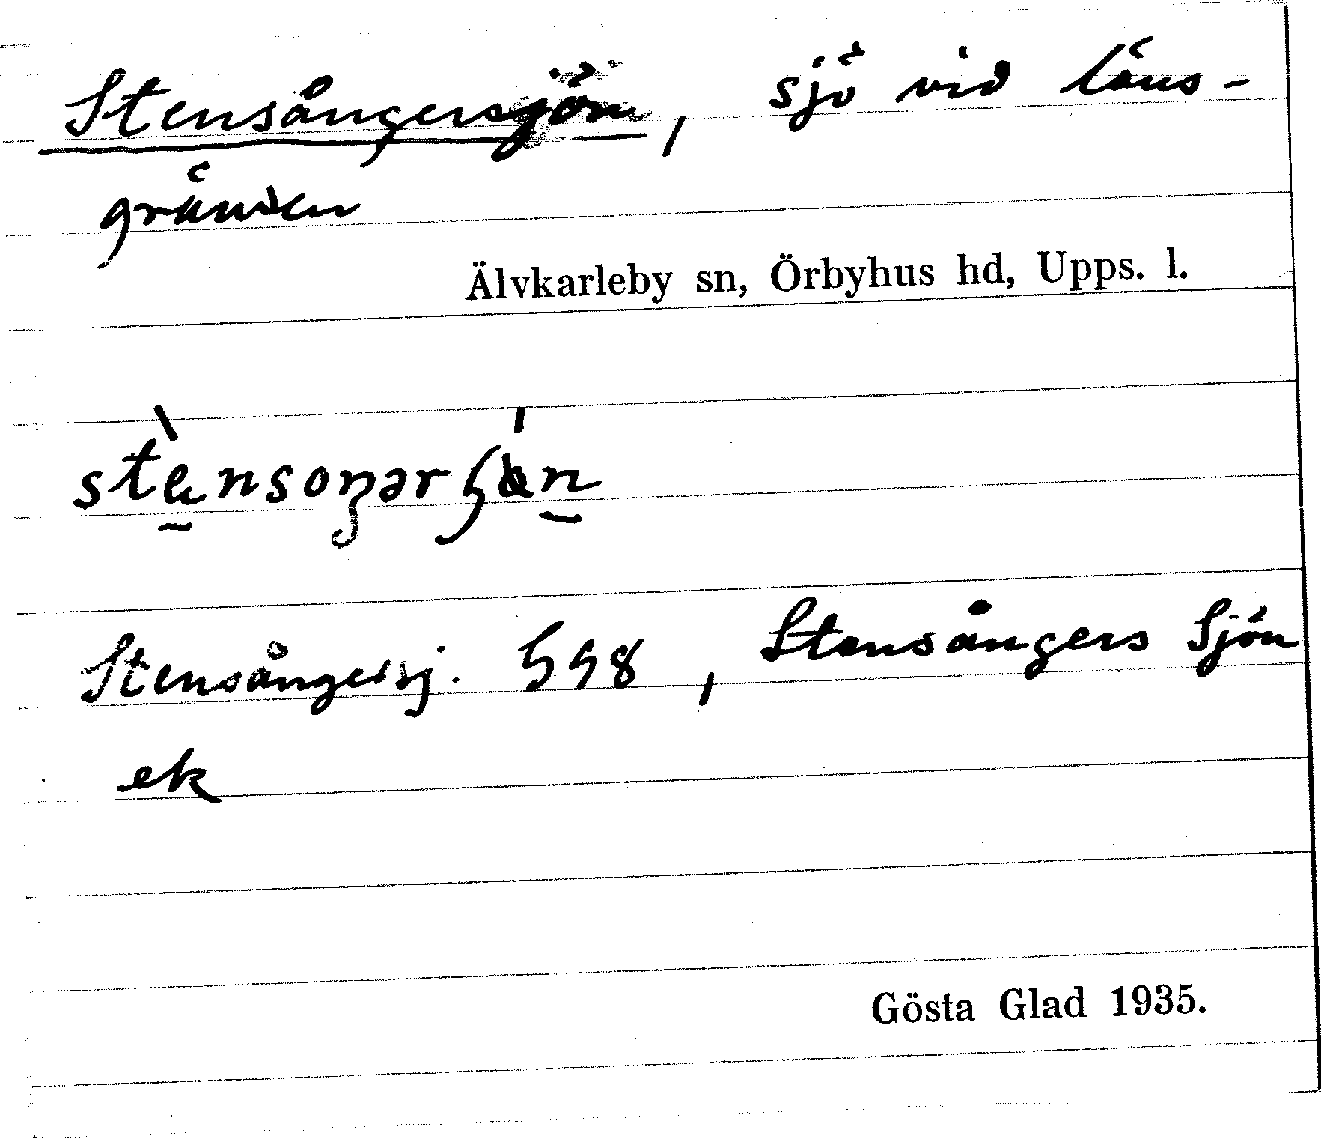 Stensångersjön, sjö vid läns-
gränsen
Älvkarleby sn, Örbyhus hd, Upps. l.
Stensångersj. 598, Stensångers Sjön
ek
Gösta Glad 1935.